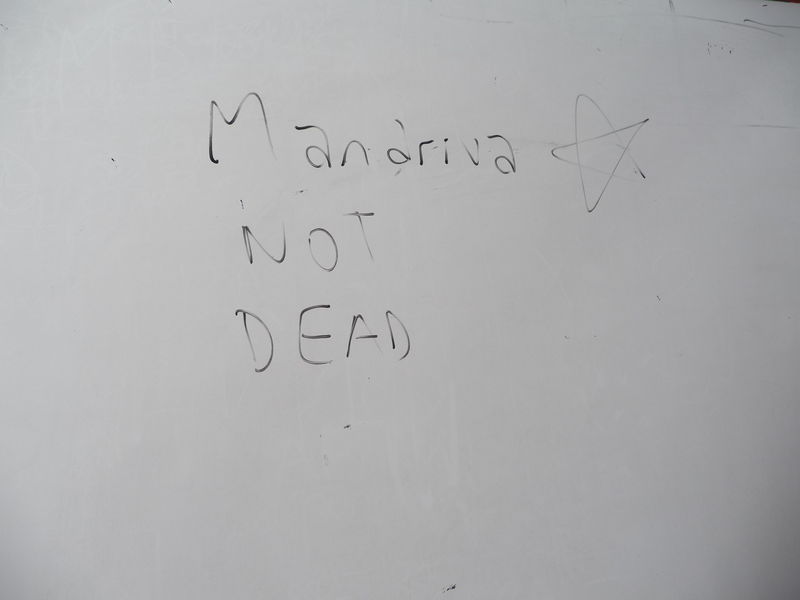 Mandriva ☆
NOT
DEAD